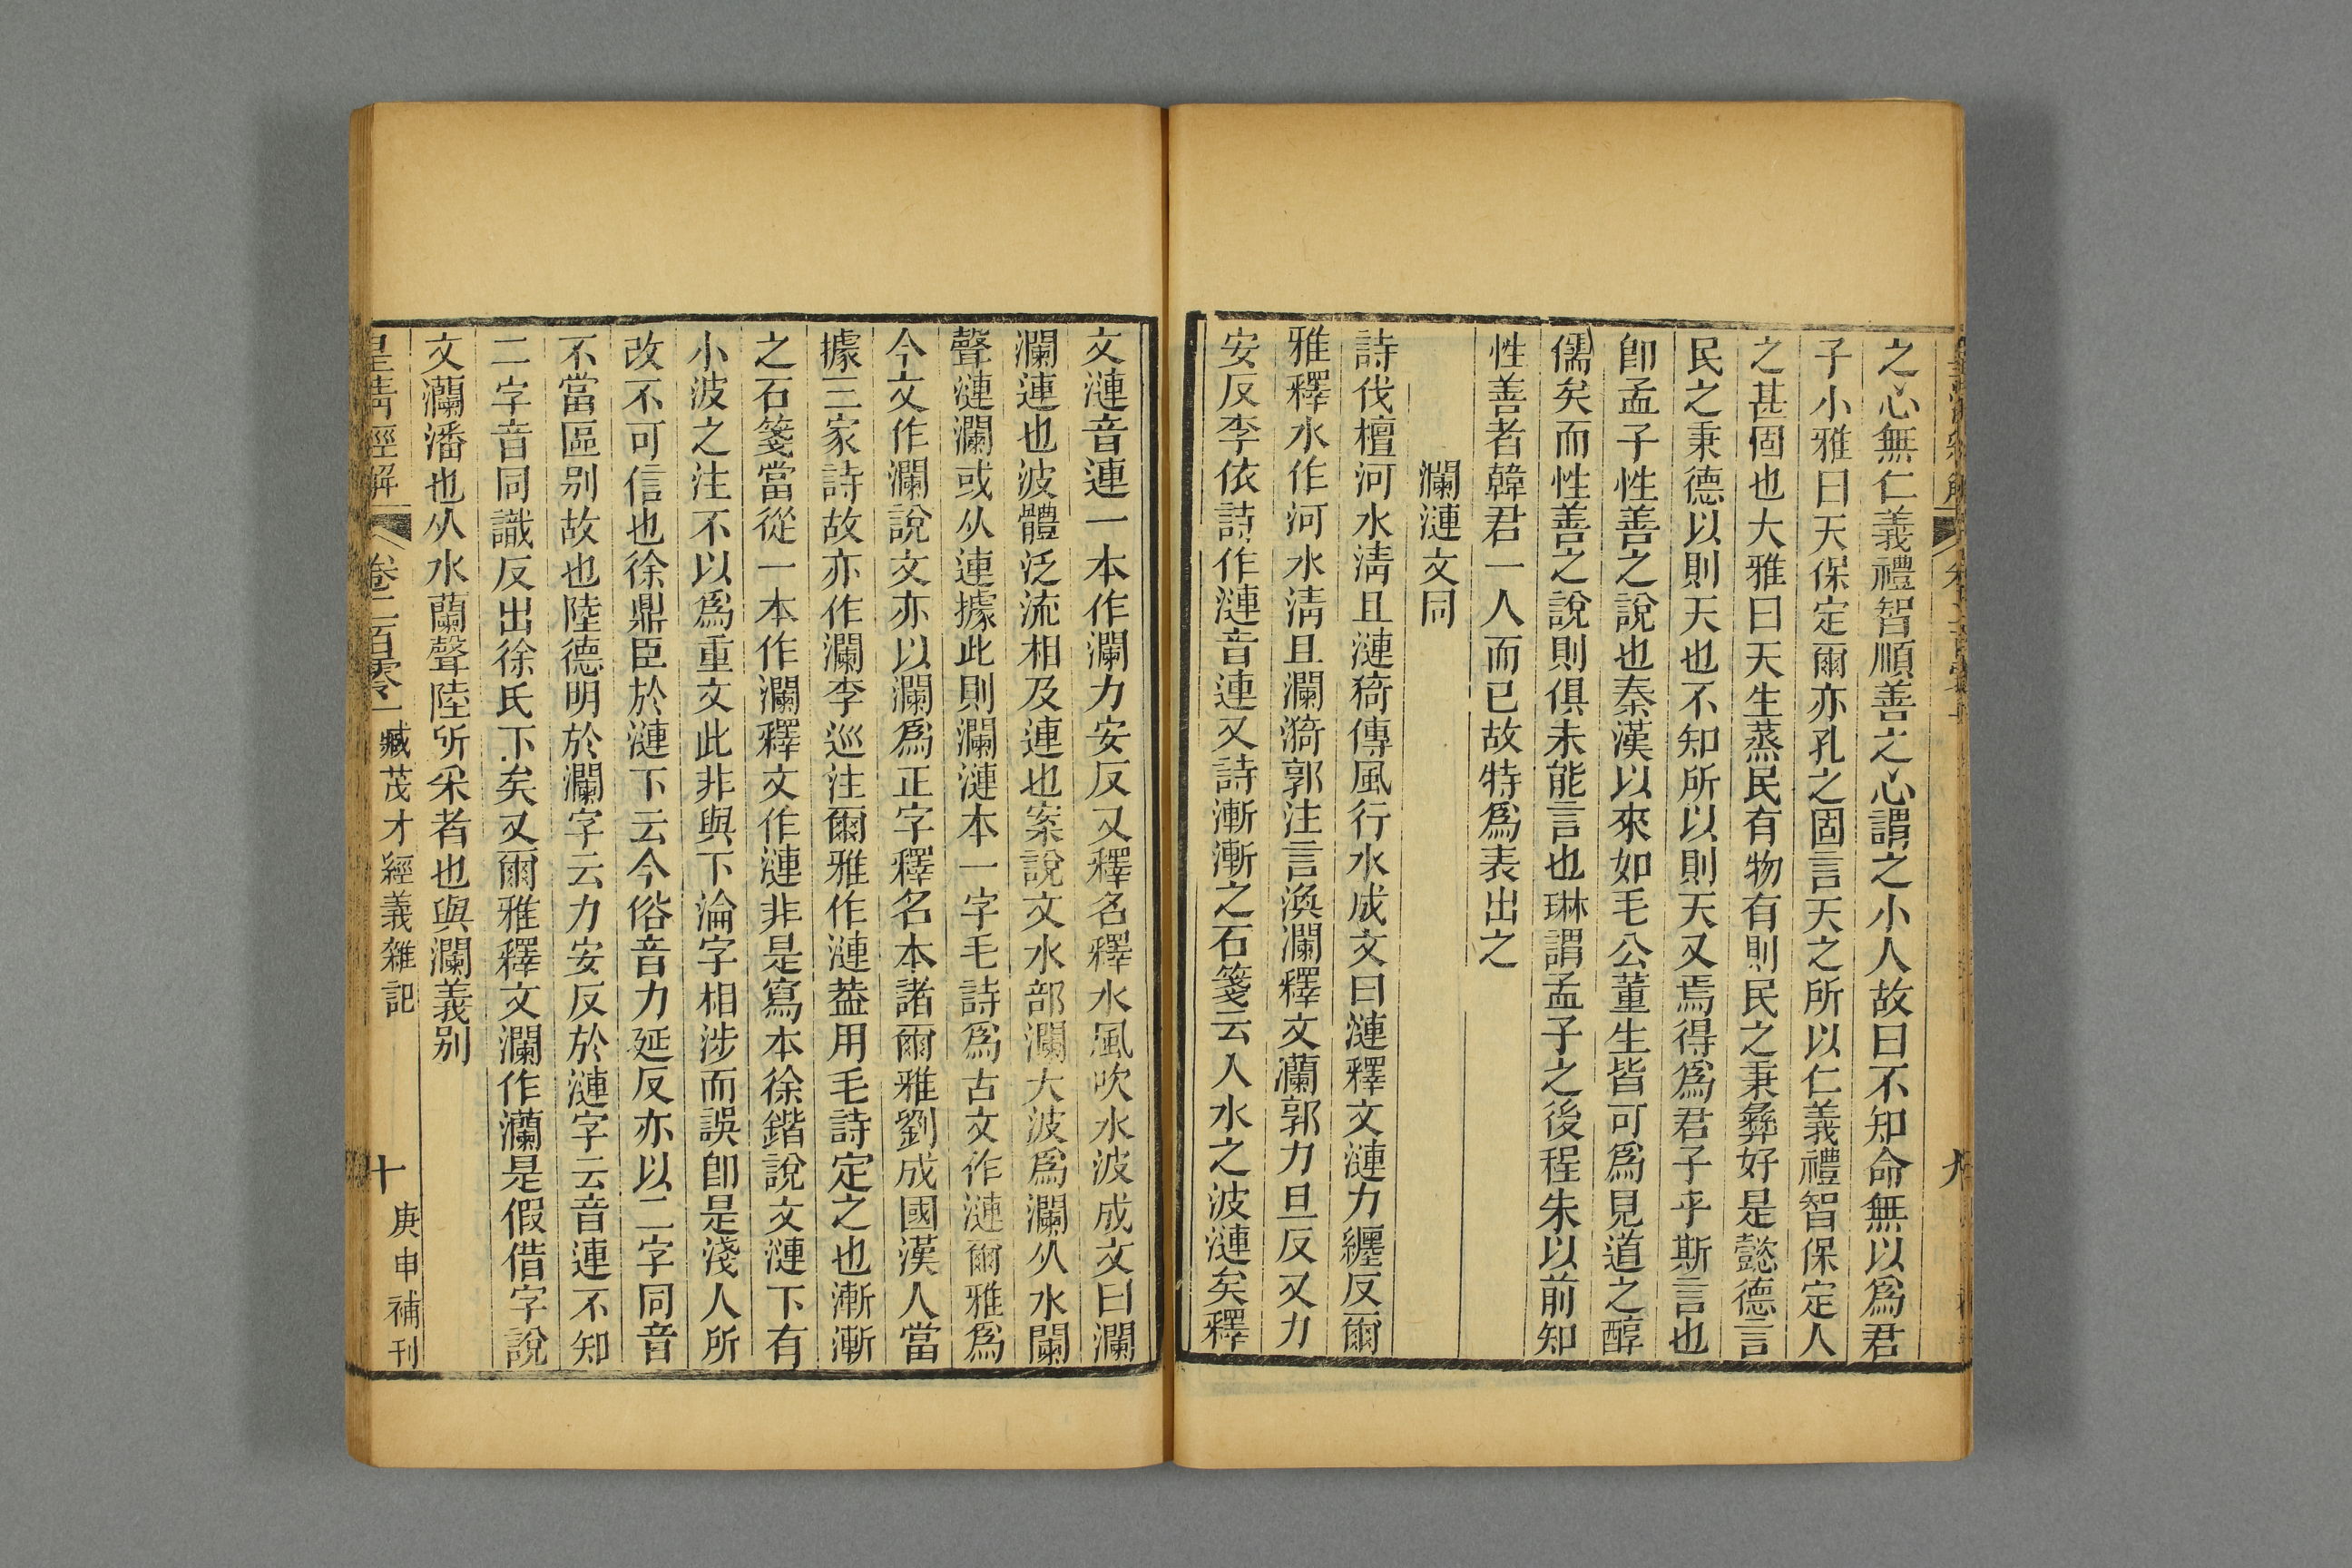 之心無仁義禮智順善之心謂之小人故曰不知命無以爲君
子小雅曰天保定爾亦孔之固言天之所以仁義禮智保定人
之甚固也大雅曰天生蒸民有物有則民之秉彝好是懿德言
民之秉德以則天也不知所以則天又焉得爲君子乎斯言也
卽孟子性善之說也秦漢以來如毛公董生皆可爲見道之醇
儒矣而性善之說則俱未能言也琳謂孟子之後程朱以前知
性善者韓君一人而已故特爲表出之
瀾漣文同
詩伐檀河水淸且漣猗傳風行水成文曰漣釋文漣力纏反爾
雅釋水作河水淸且瀾漪郭注言渙瀾釋文灡郭力旦反又力
安反李依詩作漣音連又詩漸漸之石箋云入水之波漣矣釋
文漣音連一本作瀾力安反又釋名釋水風吹水波成文曰瀾
瀾連也波體泛流相及連也案說文水部瀾大波爲瀾从水闌
聲漣瀾或从連據此則瀾漣本一字毛詩爲古文作漣爾雅爲
今文作瀾說文亦以瀾爲正字釋名本諸爾雅劉成國漢人當
據三家詩故亦作瀾李巡注爾雅作漣葢用毛詩定之也漸漸
之石箋當從一本作瀾釋文作漣非是寫本徐鍇說文漣下有
小波之注不以爲重文此非與下淪字相涉而誤卽是淺人所
改不可信也徐鼎臣於漣下云今俗音力延反亦以二字同音
不當區别故也陸德明於瀾字云力安反於漣字云音連不知
二字音同識反出徐氏下矣又爾雅釋文瀾作灡是假借字說
文灡潘也从水蘭聲陸所采者也與瀾義别
皇淸經解 卷二百零一 臧茂才經義雜記 十 庚申補刊